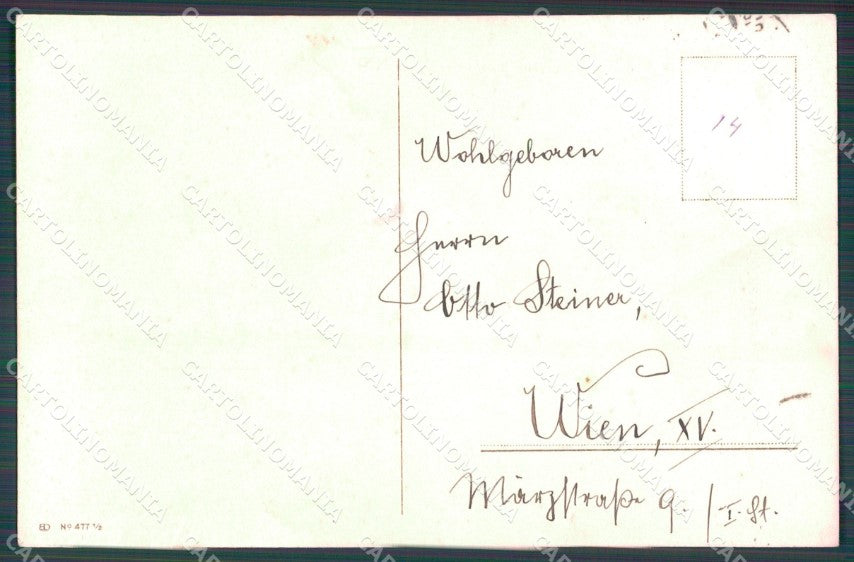 14
Wohlgeboren
Herrn
Otto Steiner,
Wien, XV.
Märzstraße 9. / I. St.
BD Nº 477 ½
CARTOLINOMANIA